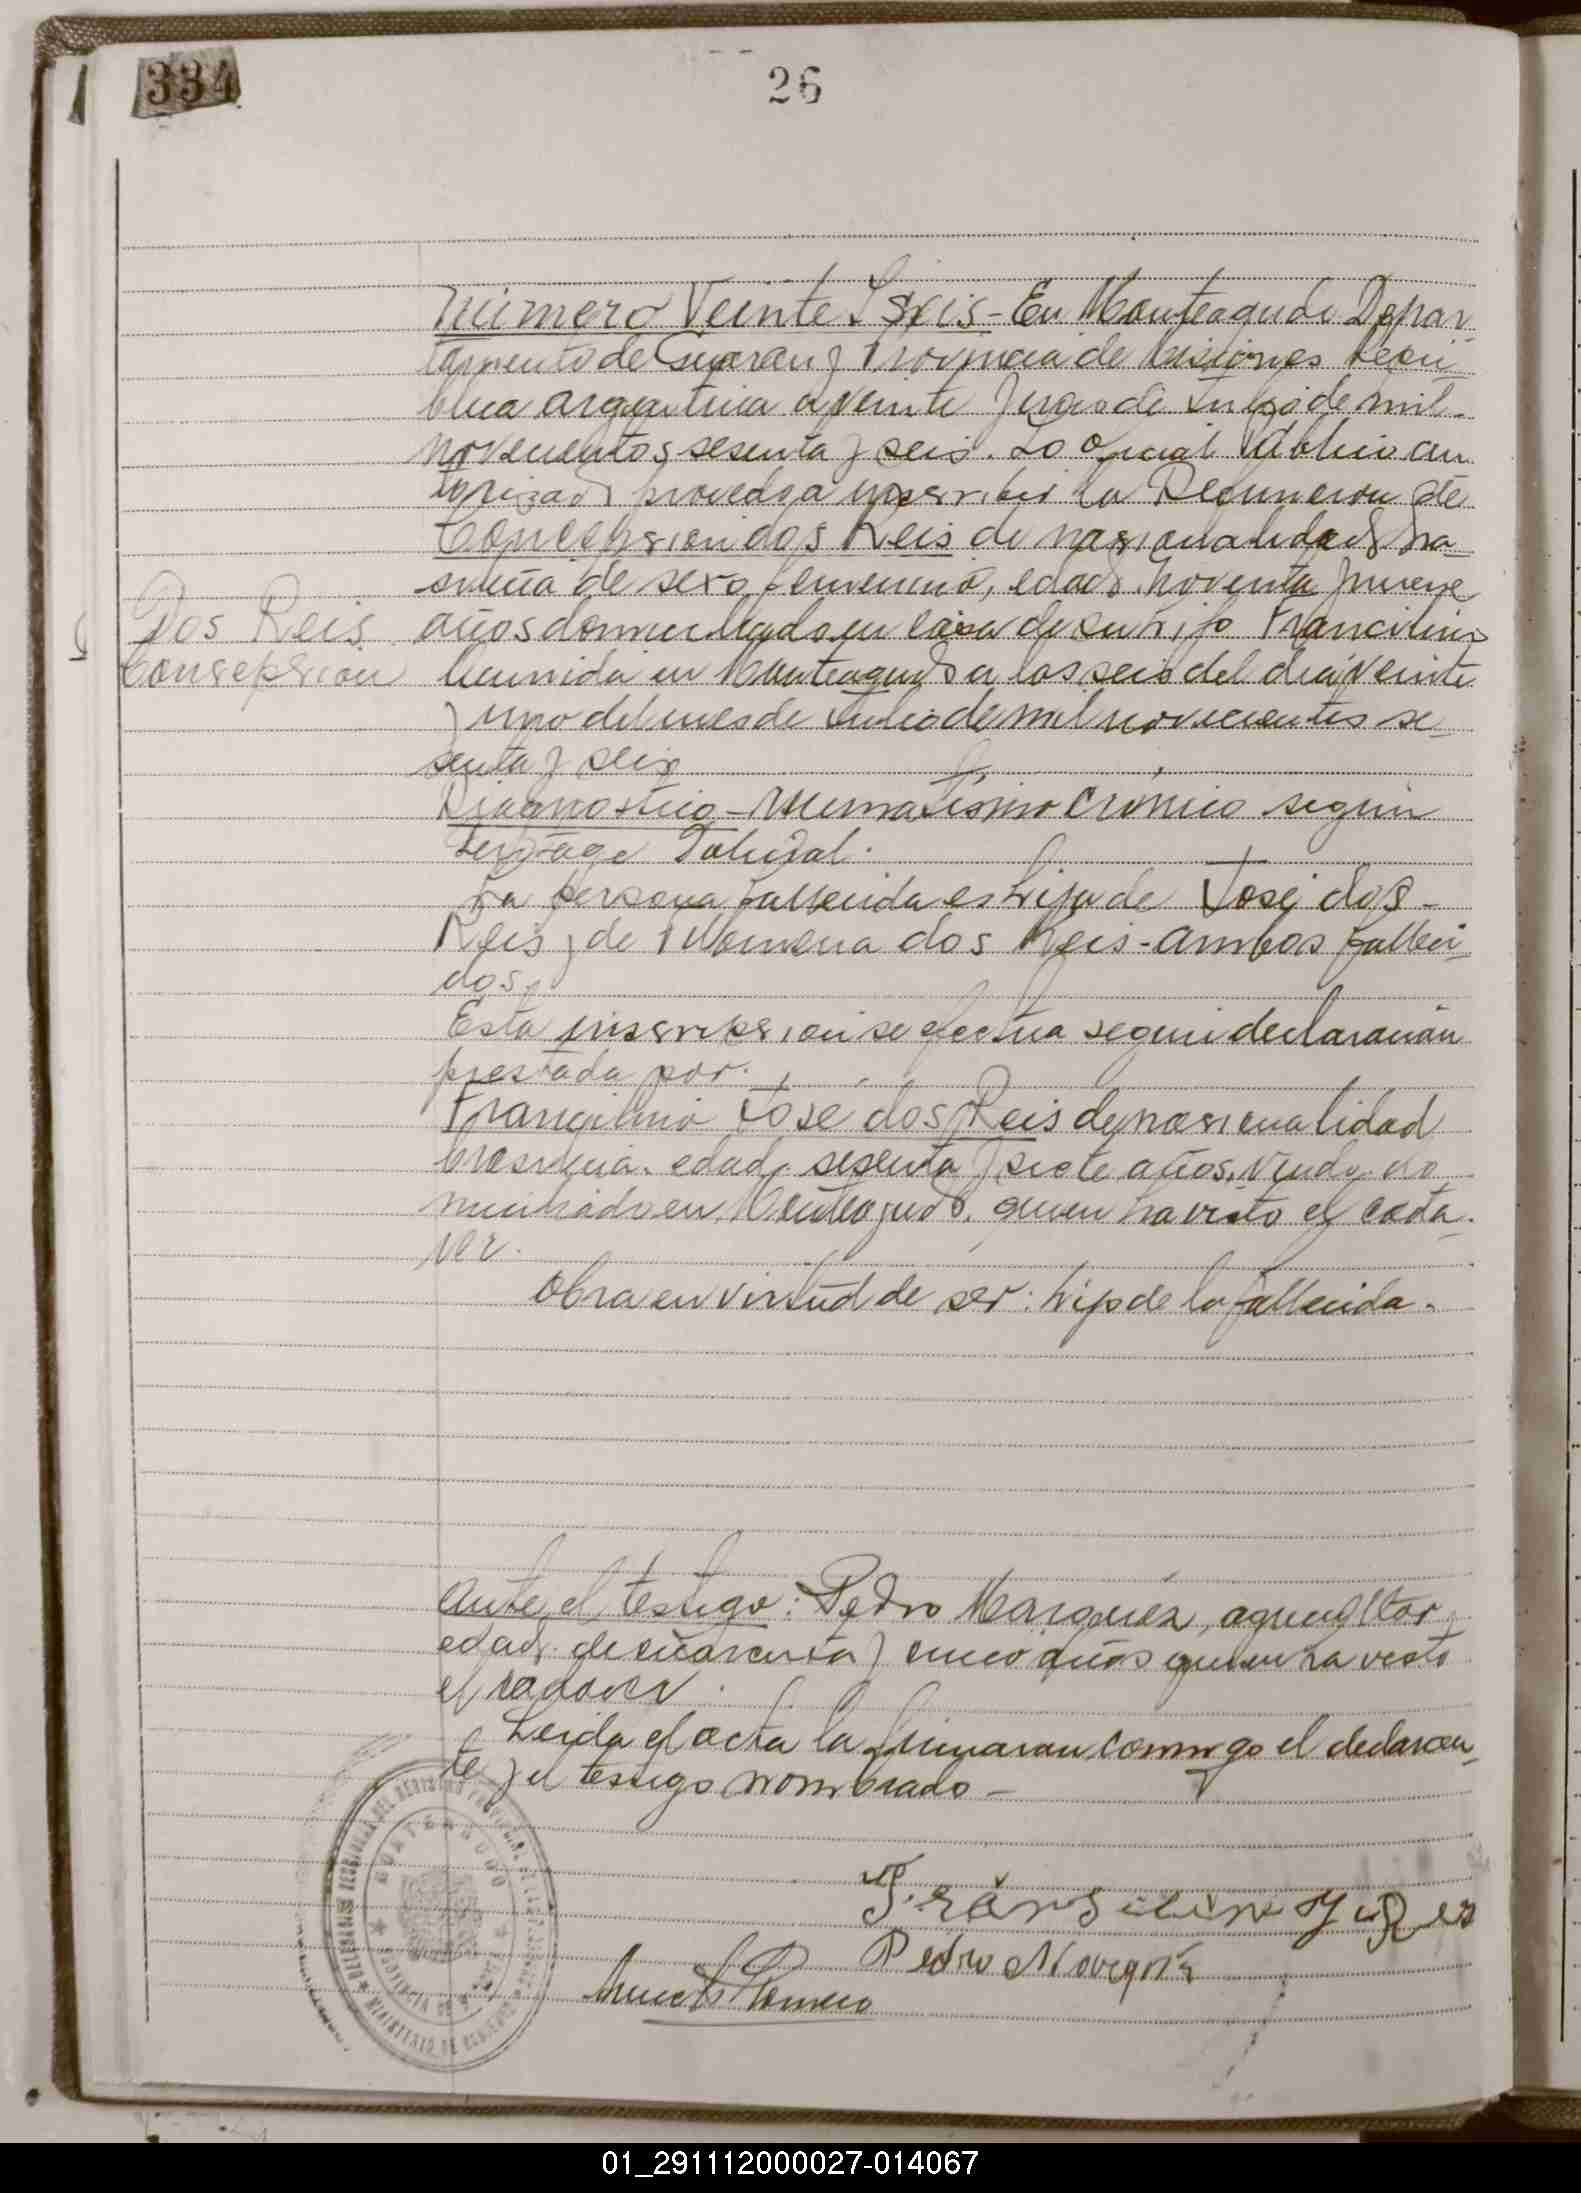 334
26
Número Veinte y seis - En Monteagudo Depar
tamento de Guarany Provincia de Misiones Repú
blica argentina a veinte y uno de Julio de mil
novecientos sesenta y seis. Yo Oficial Público au
torizado procedo a inscribir la Defuncion de
Consepsion dos Reis de nasionalidad bra
sileña de sexo femenino, edad noventa y nueve
Dos Reis
Consepsion
años domiciliado en casa de su hijo Francilino
ocurrida en Monteagudo a las seis del dia veinte
y uno del mes de Julio de mil novecientos se
senta y seis
Diagnostico - reumatismo crónico según
Policial.
La persona fallecida es hija de José dos
Reis y de Filomena dos Reis - ambos falleci
dos.
Esta inscripsion se efectua segun declaración
prestada por.
Francilino José dos Reis de nasionalidad
brasileña. edad. sesenta y siete años, viudo. do
miciliado en Monteagudo. quien ha visto el cada
ver.
Obra en virtud de ser: hijo de la fallecida.
Ante el testigo: Pedro Marquez, agricultor,
edad. de cuarenta y cinco años quien ha visto
el cadaver.
Leida el acta la firmaran conmigo el declaran
te y el testigo nombrado -
MONTEAGUDO
MINISTERIO DE GOBIERNO
Pedro Marques
Romero
01_291112000027-014067